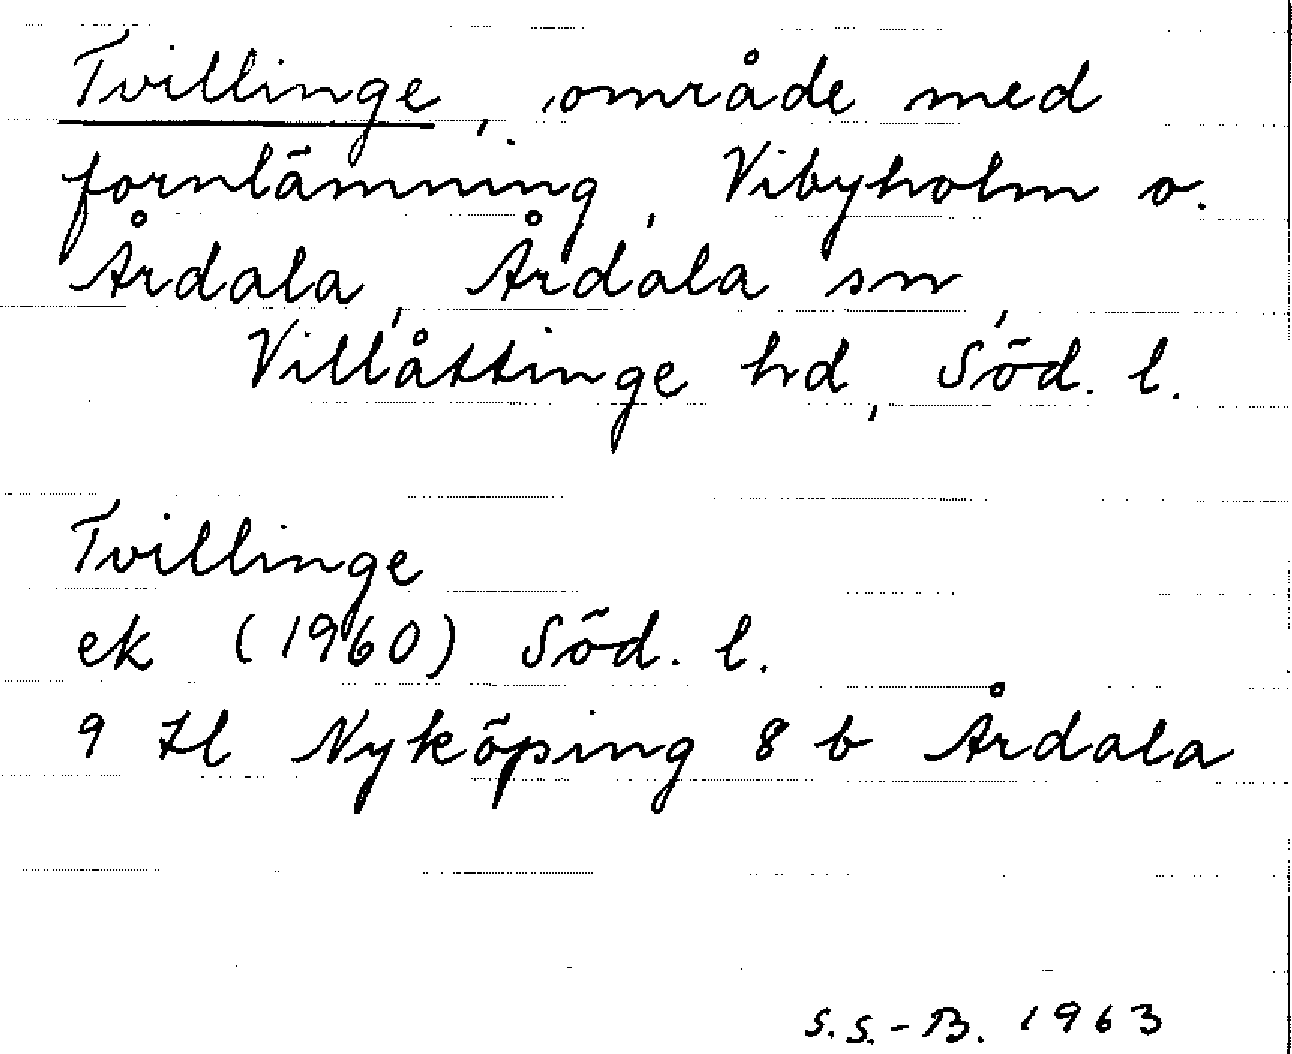 Tvillinge, område med
fornlämning, Vibyholm o.
Årdala, Årdala sn,
Villåttinge hd, Söd. l.
Tvillinge
ek (1960) Söd. l.
9 H l Nyköping 8 b Årdala
S.S.-B. 1963